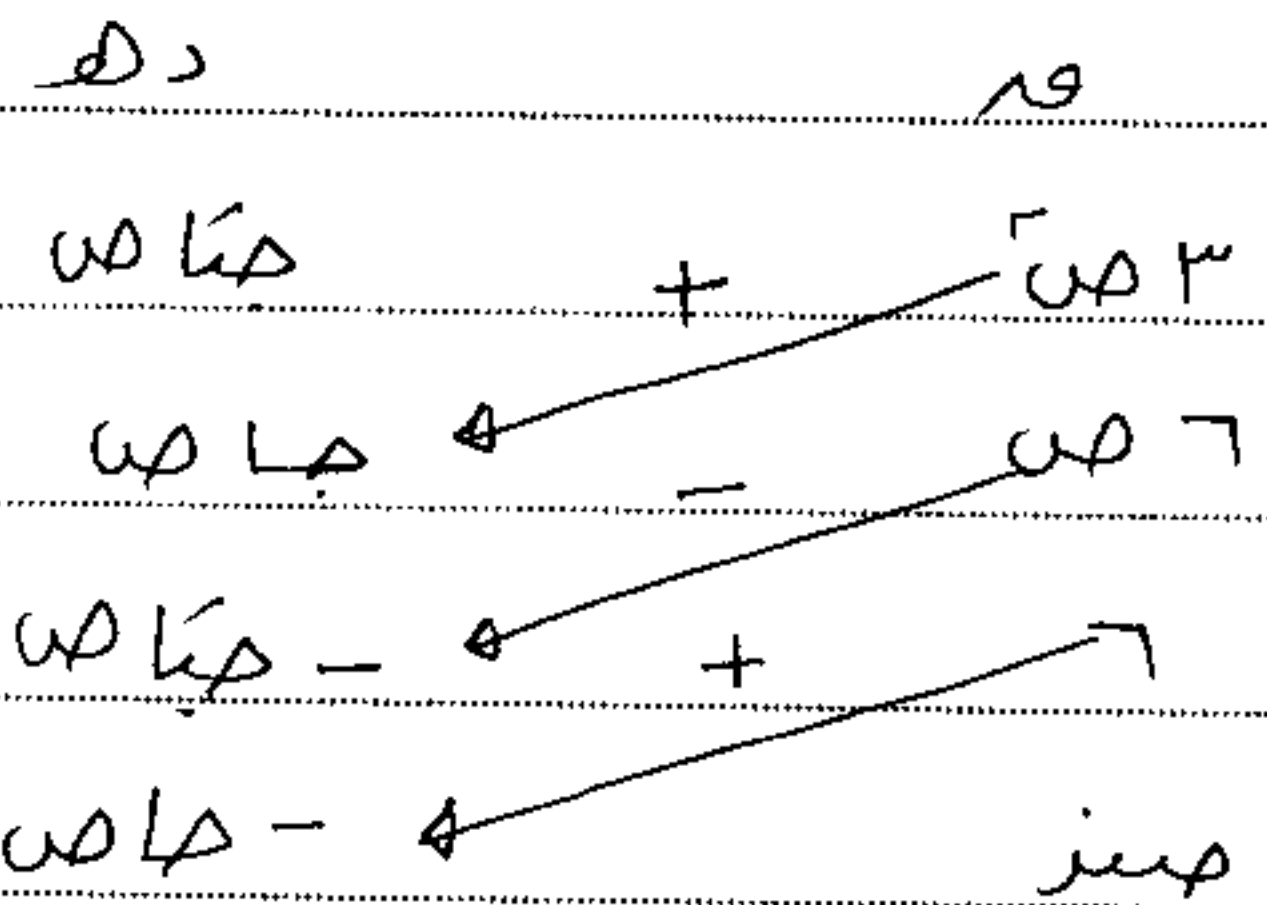 ق دهـ
٣ص٢ + جتاص
٦ص − جاص
٦ + −جتاص
صفر −جاص